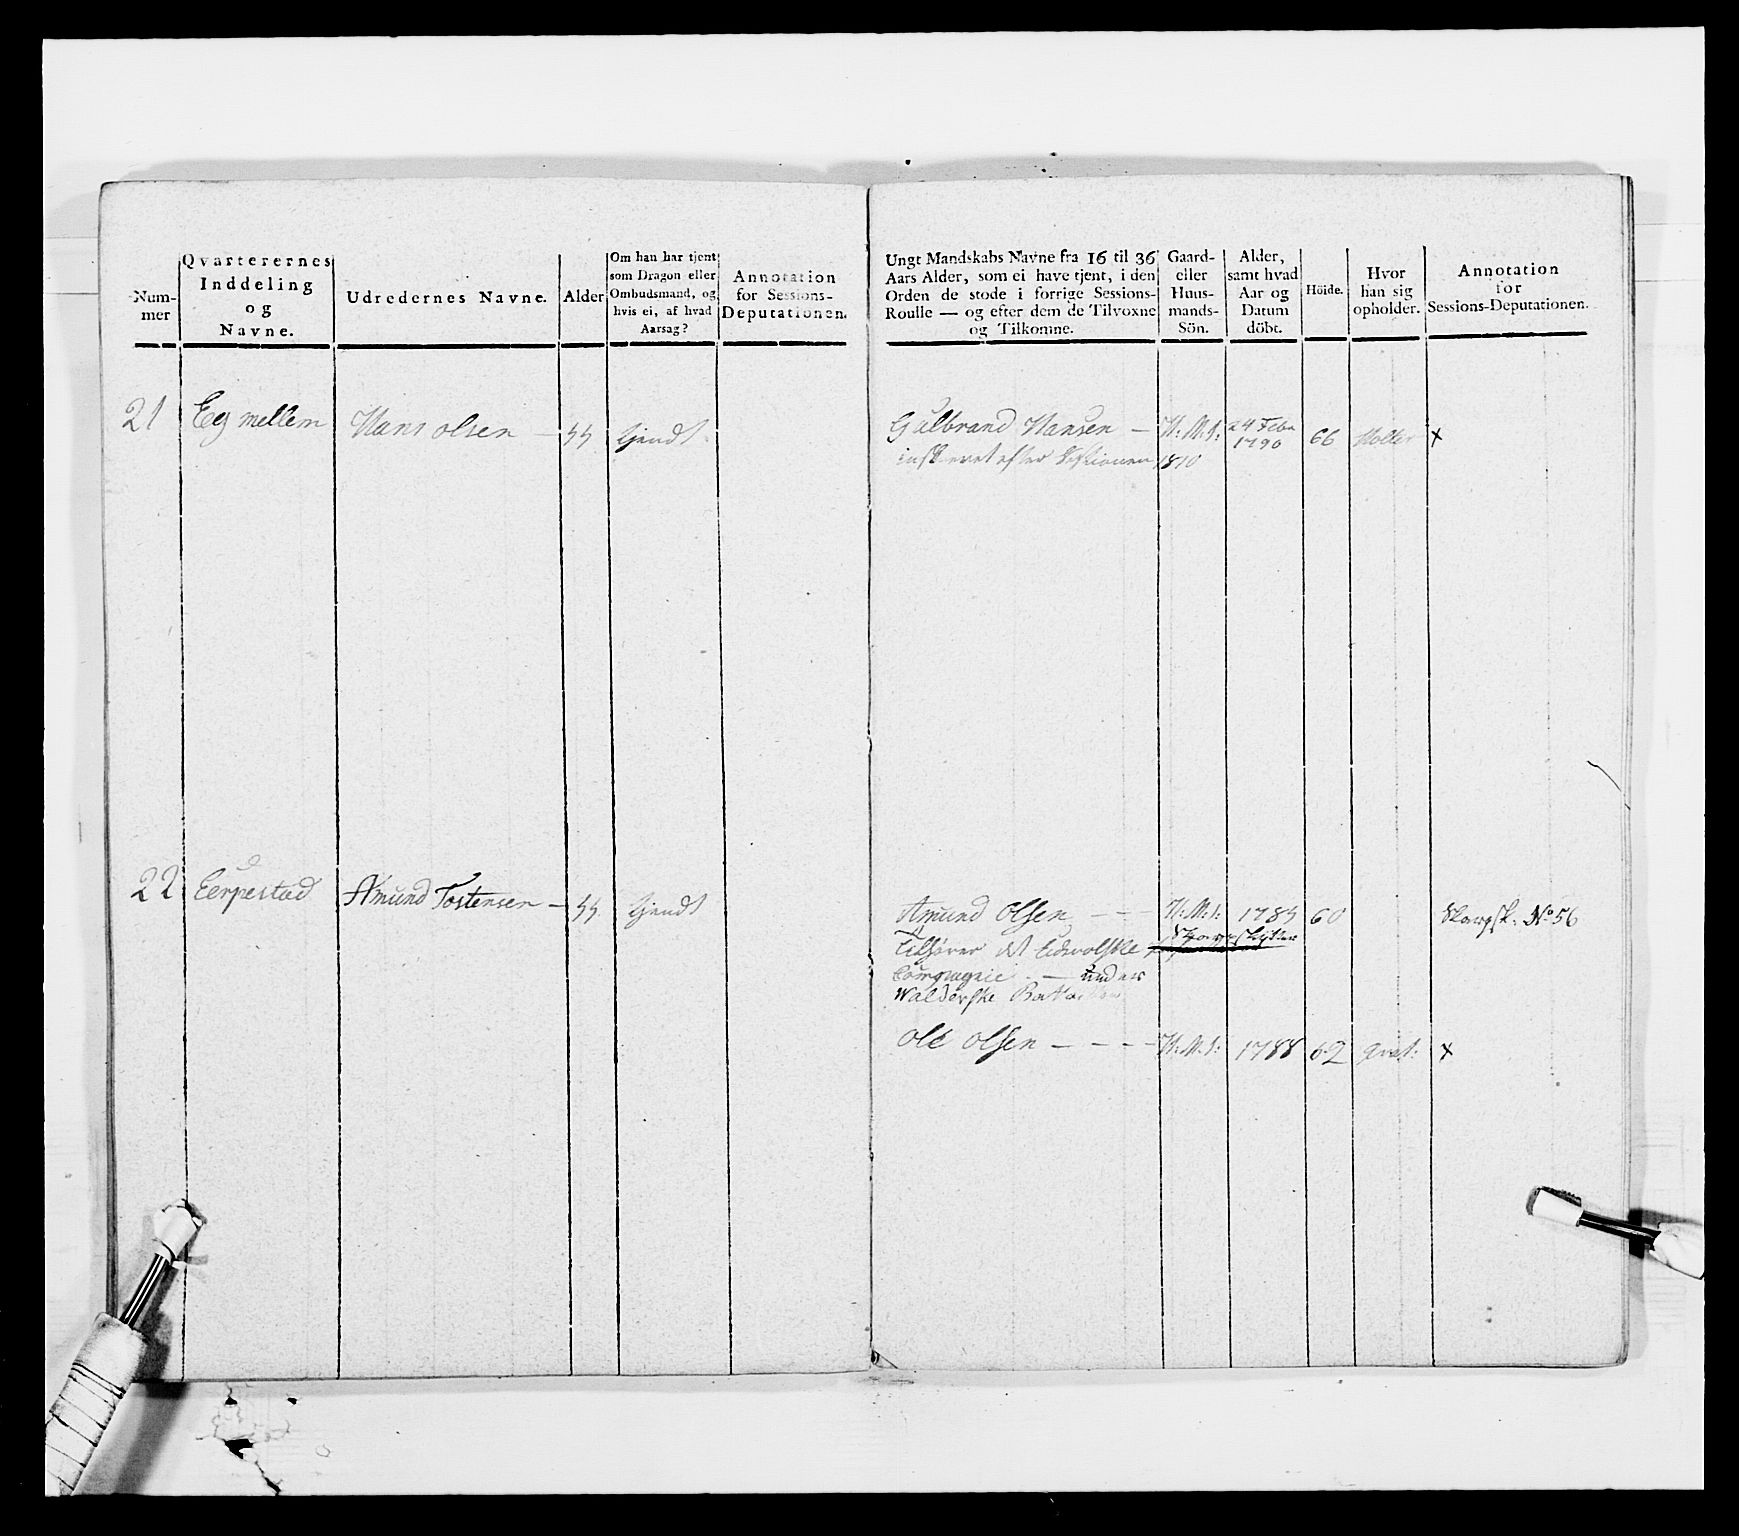 Num-
mer
Qvarterernes
Inddeling
og
Navne.
Udredernes Navne.
Alder
Om han har tjent
som Dragon eller
Ombudsmand, og
hvis ei, af hvad
Aarsag?
Annotation
for Sessions-
Deputationen.
21 Eg mellem Hans olsen — 55 tjendt
22 Eerpestad Amund Tostensen — 55 tjendt
Ungt Mandskabs Navne fra 16 til 36
Aars Alder, som ei have tjent, i den
Orden de stode i forrige Sessions-
Roulle — og efter dem de Tilvoxne
og Tilkomne.
Gaard-
eller
Huus-
mands-
Sön.
Alder,
samt hvad
Aar og
Datum
döbt.
Höide.
Hvor
han sig
opholder.
Annotation
for
Sessions-Deputationen.
Gulbrand Hansen — H: M: S: 24 Febr 1790 66 Holter x
efter Sessionen 1810
Amund Olsen — — H: M: S: 1785 60 Skarpsk: No 56
Tilhører det Eidsvolske
Compagnie — under
Walderske
Ole Olsen — — — — H: M: S: 1788 62 x